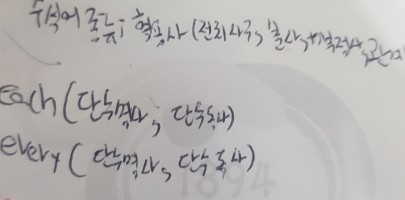 수식어 종류: 형용사 (전치사구, 분사, 부정사, 관계
each (단수명사, 단수동사)
every (단수명사, 단수동사)
1894